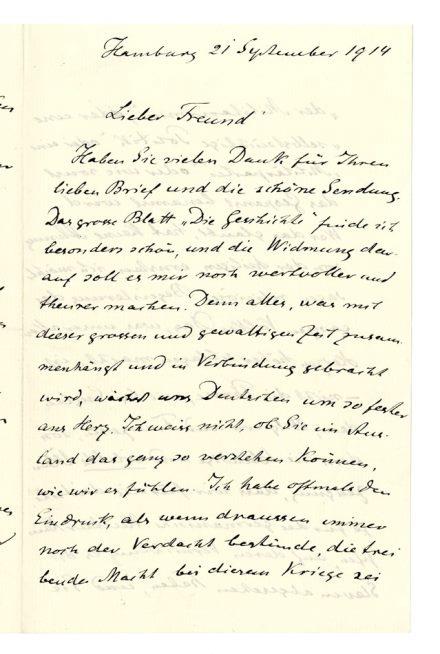 Hamburg 21 September 1914
Lieber Freund
Haben Sie vielen Dank für Ihren
lieben Brief und die schöne Sendung.
Das grosse Blatt „Die Geschichte“ finde ich
besonders schön, und die Widmung dar-
auf soll es mir noch wertvoller und
theurer machen. Denn alles, was mit
dieser grossen und gewaltigen Zeit zusam-
menhängt und in Verbindung gebracht
wird, wächst uns Deutschen um so fester
ans Herz. Ich weiss nicht, ob Sie im Aus-
land das ganz so verstehen können,
wie wir es fühlen. Ich habe oftmals den
Eindruck, als wenn draussen immer
noch der Verdacht bestünde, die trei
bende Macht bei diesem Kriege sei